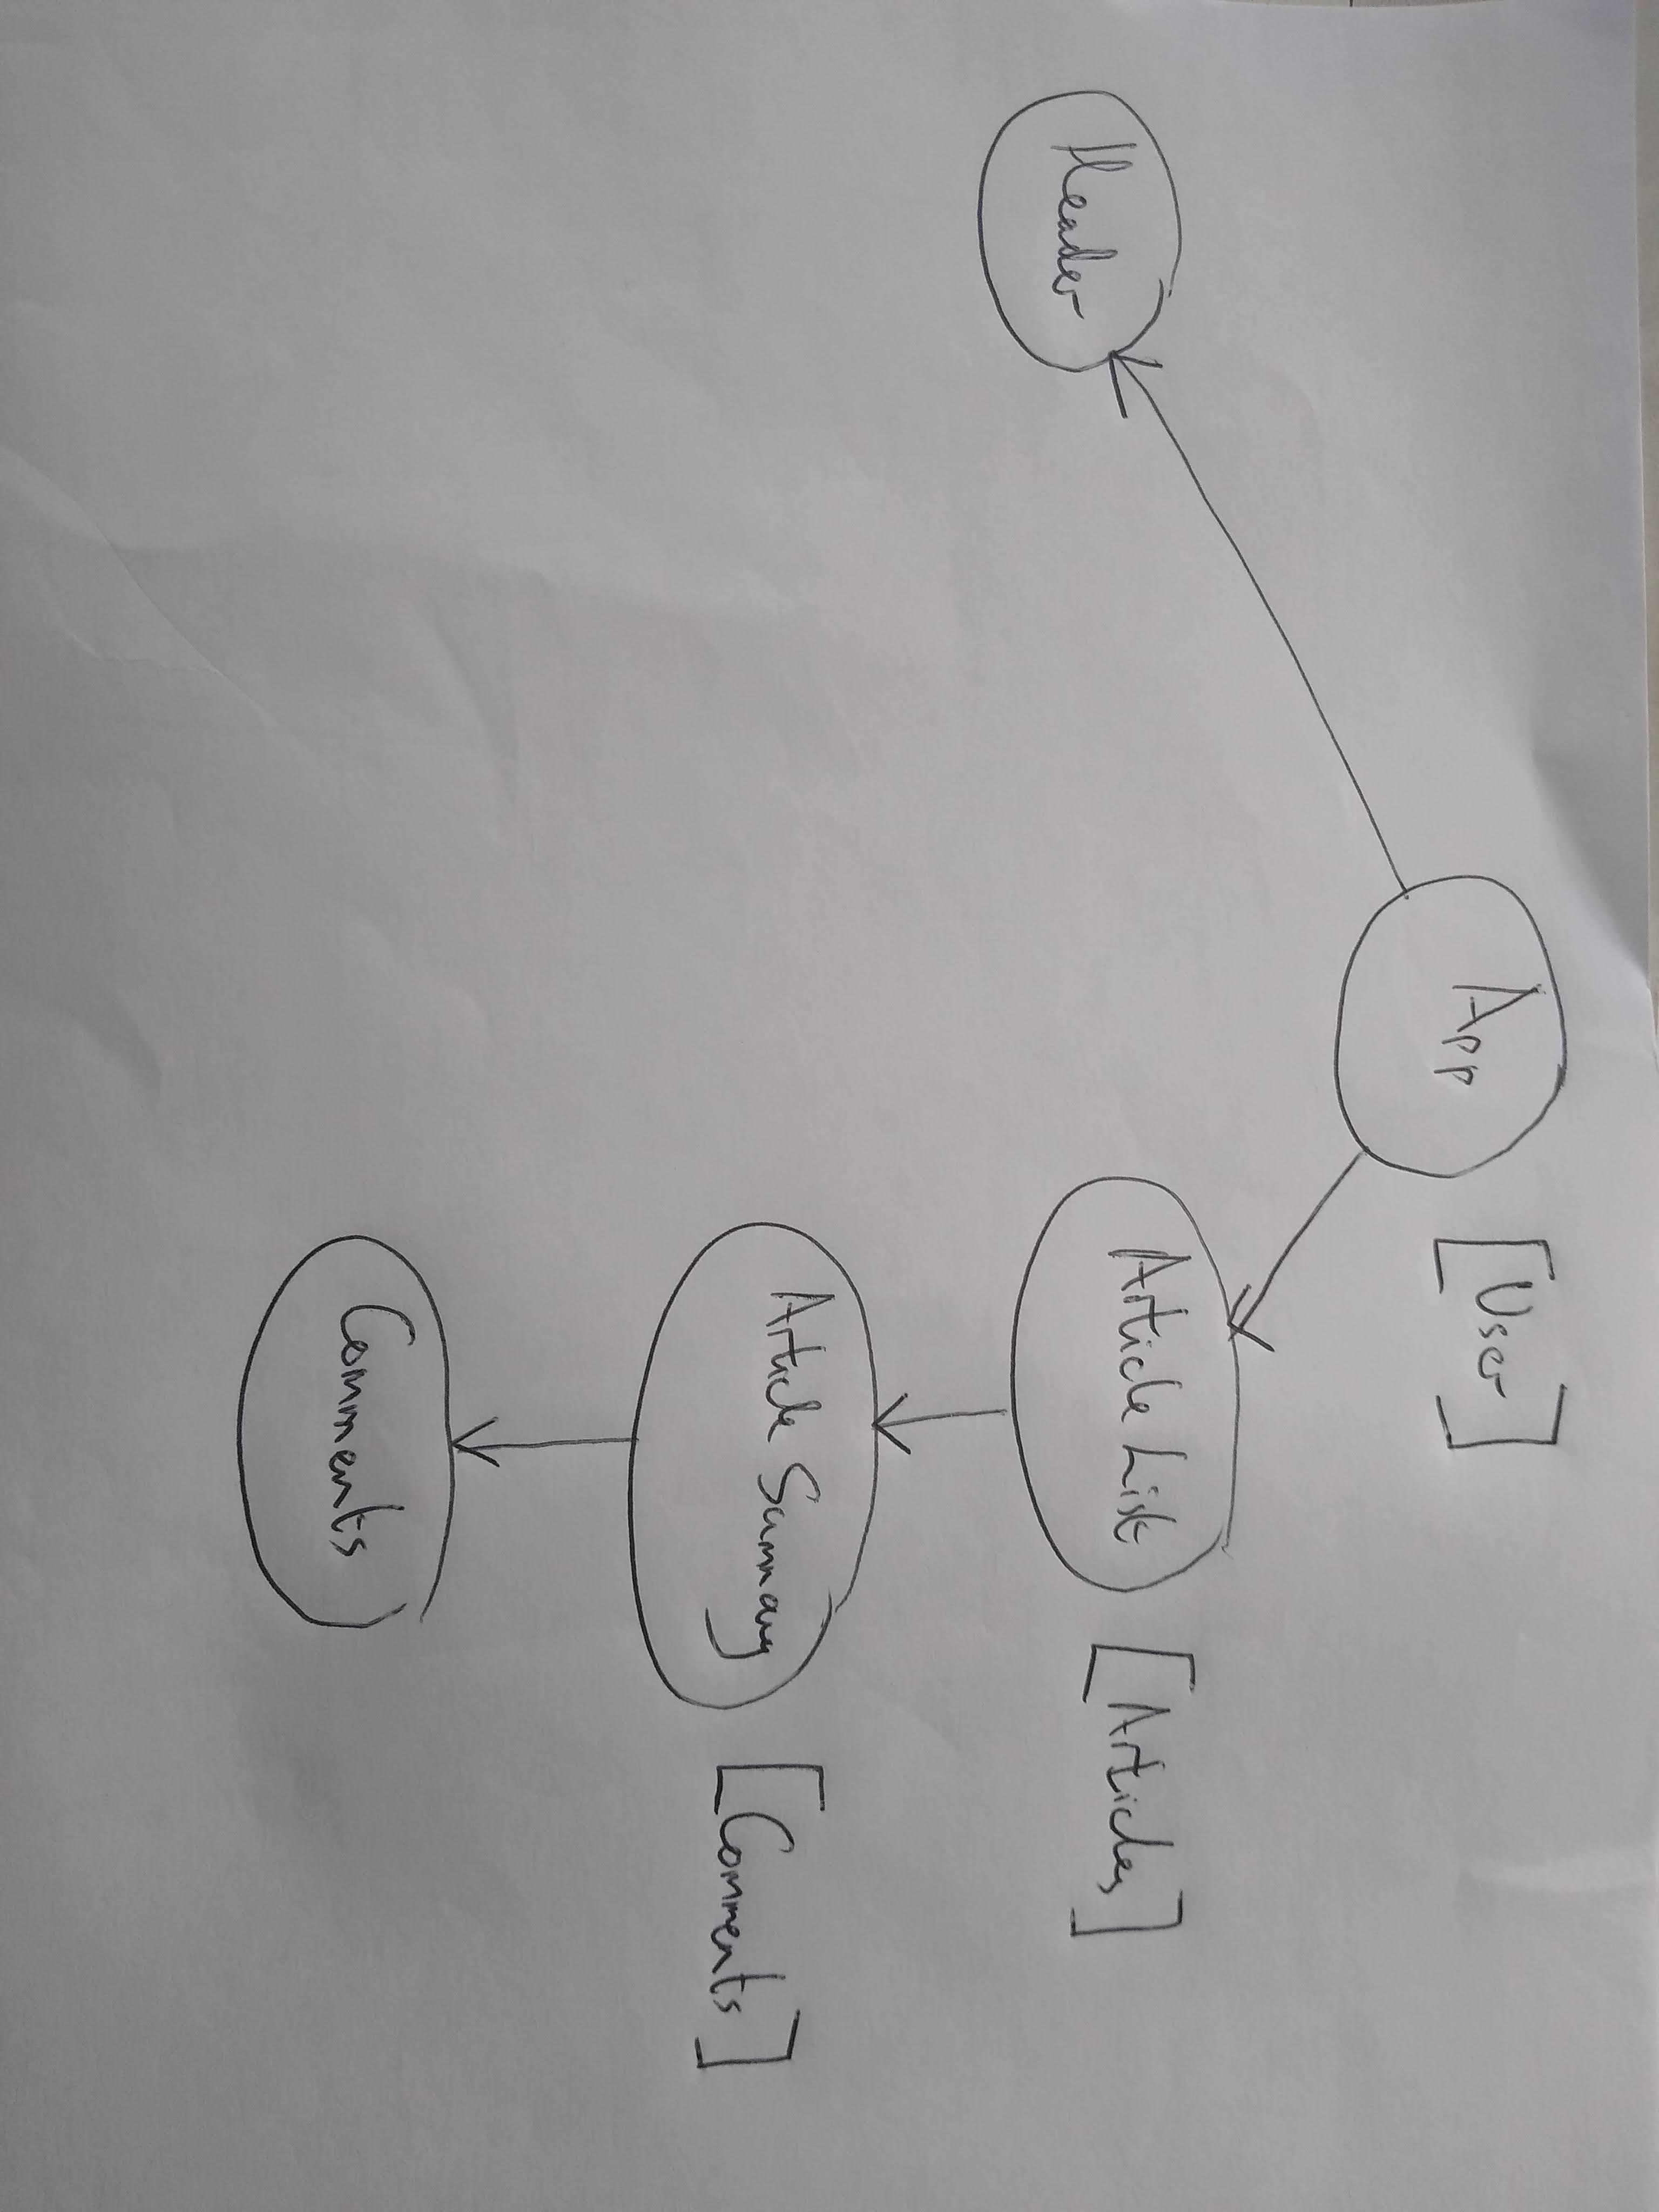 App [User]
Header
Article List [Articles]
Article Summary [Comments]
Comments